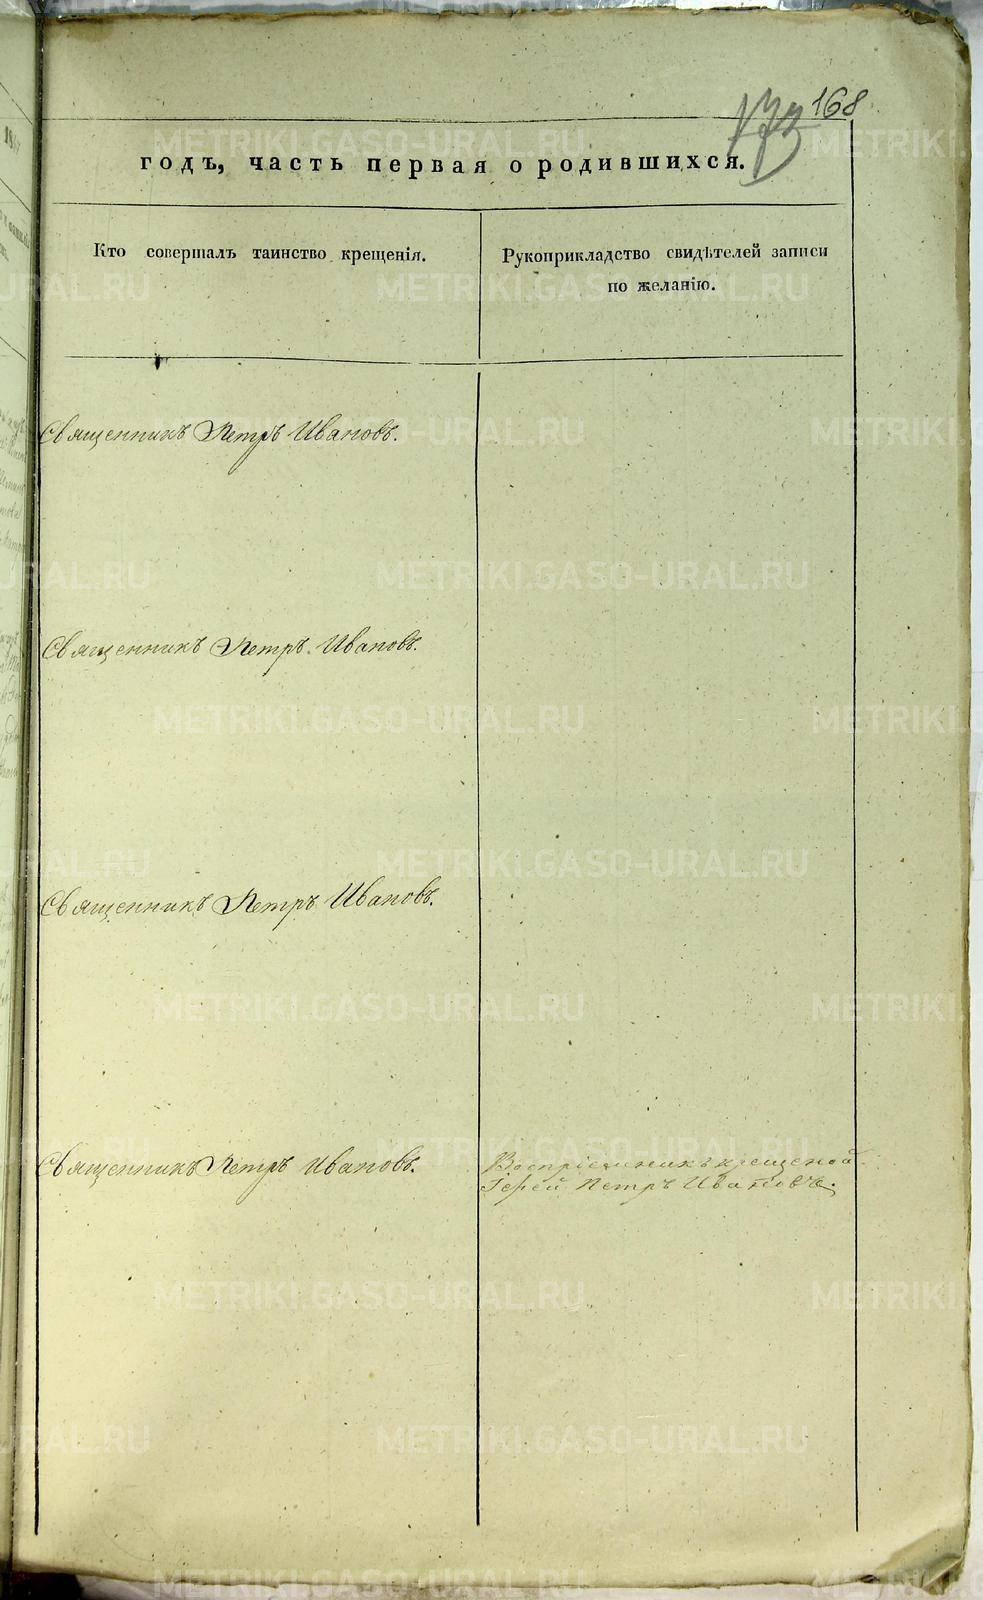 173 168
годъ, часть первая о родившихся.
Кто совершалъ таинство крещенія.
Рукоприкладство свидѣтелей записи
по желанію.
Священникъ Петръ Ивановъ.
Священникъ Петръ Ивановъ.
Священникъ Петръ Ивановъ.
Священникъ Петръ Ивановъ.
Воспріемникъ крещеной
Іерей Петръ Ивановъ.
METRIKI.GASO-URAL.RU